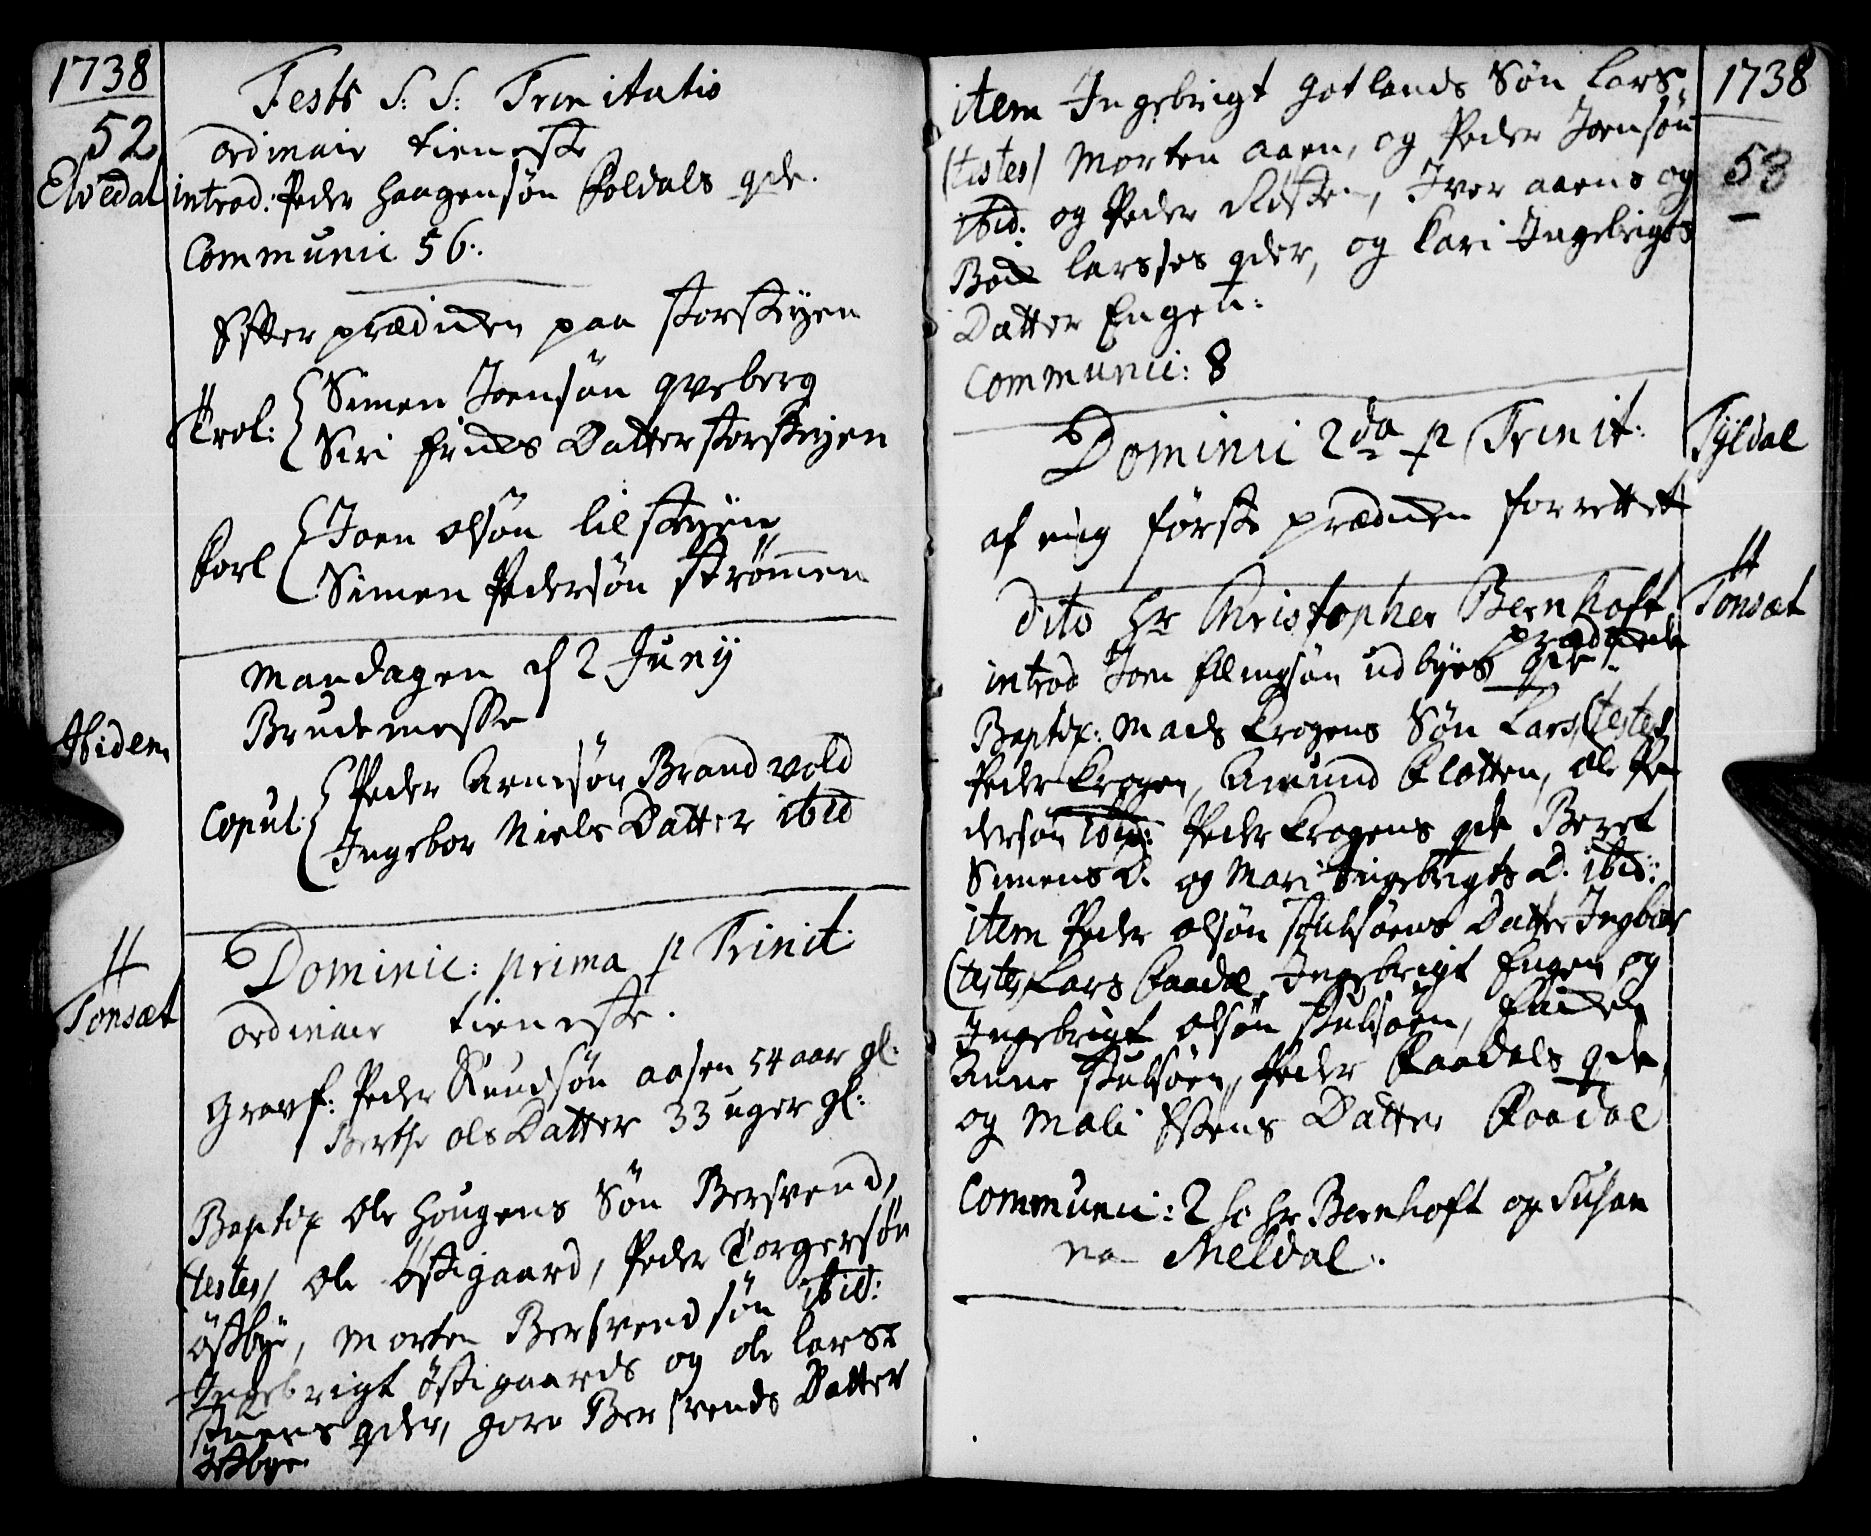 1738
52
Elvedal
Festo S: S: Trinitatis
ordinair tieneste
introd: Peder Haagensøn Koldals qde.
Communic 56.
Efter prædicken paa Storskyen
Trol: Simen Joensøn qveberg
Siri Friches Datter Storskyen
Forl Joen Olsøn lilskyen
Simen Pedersøn Strømmen
Mandagen d 2 Junij
Ibidem
Brudemesse
Copul: Peder Arnesøn Brandvold
Ingebor Niels Datter ibid
Tonsæt
Dominic: prima p Trinit:
ordinair tieneste.
Gravf: Peder Knudsøn aasen 54 aar gl:
Berthe ols Datter 33 uger gl:
Baptiz Ole Hougens Søn Bersvend,
(testes) Ole Østigaard, Peder Torgersøn
Østbye, Morten Bersvendsøn ibid:
Ingebrigt Østigaards og ole Lars
qder, goro Bersvends Datter
Østbye
1738
53
item Ingebrigt Gotlands Søn Lars,
(testes) Morten aaen, og Peder Joensøn
ibid. og Peder, Iver aaens og
Larsses qder, og Kari Ingebrigts
Datter Engen:
Communic: 8
Tyldal
Dominic 2da p Trinit:
af mig første prædicken forrettet
Tonsæt
dito Hr Christopher Bernhoft
prædicede
introd Joen Elingsøn udbyes qde.
Baptiz: Mads Krogens Søn Lars, (testes
Peder Krogen, Amund Kletten, Ole Pe
dersøn ibid: Peder Krogens qde Beret
Simens D. og Mari Ingebrigts D. ibid:
item Peder Olsøn Stubsøens Datter Ingebor
(testes Lars Faadal, Ingebrigt Engen og
Ingebrigt Olsøn Stubsøen,
Anne Stubsøen, Peder Faadals qde,
og Mali Estens Datter Faadal
Communic: 2 sc Hr Bernhoft og Susan
na Meldal.